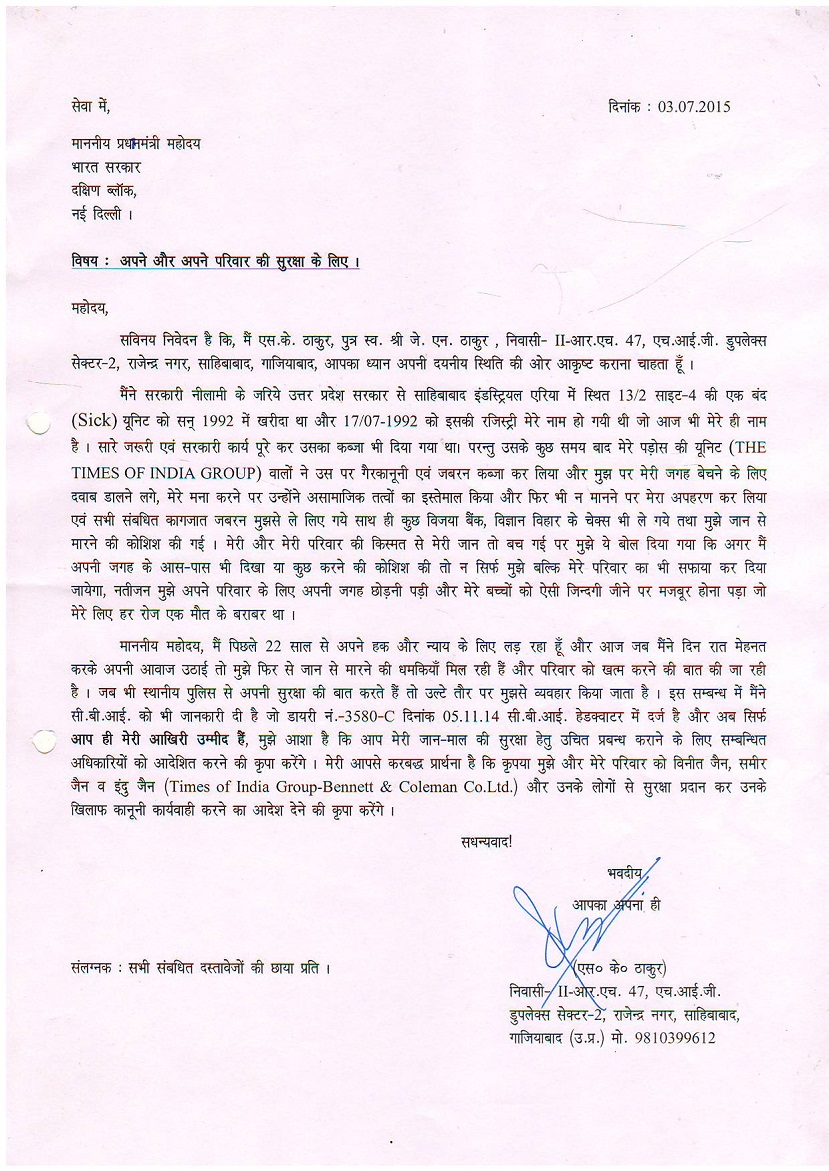 सेवा में,
दिनांक : 03.07.2015
माननीय प्रधानमंत्री महोदय
भारत सरकार
दक्षिण ब्लॉक,
नई दिल्ली ।
विषय : अपने और अपने परिवार की सुरक्षा के लिए ।
महोदय,
सविनय निवेदन है कि, मैं एस.के. ठाकुर, पुत्र स्व. श्री जे. एन. ठाकुर , निवासी- II-आर.एच. 47, एच.आई.जी. डुपलेक्स
सेक्टर-2, राजेन्द्र नगर, साहिबाबाद, गाजियाबाद, आपका ध्यान अपनी दयनीय स्थिति की ओर आकृष्ट कराना चाहता हूँ ।
मैंने सरकारी नीलामी के जरिये उत्तर प्रदेश सरकार से साहिबाबाद इंडस्ट्रियल एरिया में स्थित 13/2 साइट-4 की एक बंद
(Sick) यूनिट को सन् 1992 में खरीदा था और 17/07-1992 को इसकी रजिस्ट्री मेरे नाम हो गयी थी जो आज भी मेरे ही नाम
है । सारे जरूरी एवं सरकारी कार्य पूरे कर उसका कब्जा भी दिया गया था। परन्तु उसके कुछ समय बाद मेरे पड़ोस की यूनिट (THE
TIMES OF INDIA GROUP) वालों ने उस पर गैरकानूनी एवं जबरन कब्जा कर लिया और मुझ पर मेरी जगह बेचने के लिए
दवाब डालने लगे, मेरे मना करने पर उन्होंने असामाजिक तत्वों का इस्तेमाल किया और फिर भी न मानने पर मेरा अपहरण कर लिया
एवं सभी संबधित कागजात जबरन मुझसे ले लिए गये साथ ही कुछ विजया बैंक, विज्ञान विहार के चेक्स भी ले गये तथा मुझे जान से
मारने की कोशिश की गई । मेरी और मेरी परिवार की किस्मत से मेरी जान तो बच गई पर मुझे ये बोल दिया गया कि अगर मैं
अपनी जगह के आस-पास भी दिखा या कुछ करने की कोशिश की तो न सिर्फ मुझे बल्कि मेरे परिवार का भी सफाया कर दिया
जायेगा, नतीजन मुझे अपने परिवार के लिए अपनी जगह छोड़नी पड़ी और मेरे बच्चों को ऐसी जिन्दगी जीने पर मजबूर होना पड़ा जो
मेरे लिए हर रोज एक मौत के बराबर था ।
माननीय महोदय, मैं पिछले 22 साल से अपने हक और न्याय के लिए लड़ रहा हूँ और आज जब मैंने दिन रात मेहनत
करके अपनी आवाज उठाई तो मुझे फिर से जान से मारने की धमकियाँ मिल रही हैं और परिवार को खत्म करने की बात की जा रही
है । जब भी स्थानीय पुलिस से अपनी सुरक्षा की बात करते हैं तो उल्टे तौर पर मुझसे व्यवहार किया जाता है । इस सम्बन्ध में मैंने
सी.बी.आई. को भी जानकारी दी है जो डायरी नं.-3580-C दिनांक 05.11.14 सी.बी.आई. हेडक्वाटर में दर्ज है और अब सिर्फ
आप ही मेरी आखिरी उम्मीद हैं, मुझे आशा है कि आप मेरी जान-माल की सुरक्षा हेतु उचित प्रबन्ध कराने के लिए सम्बन्धित
अधिकारियों को आदेशित करने की कृपा करेंगे । मेरी आपसे करबद्ध प्रार्थना है कि कृपया मुझे और मेरे परिवार को विनीत जैन, समीर
जैन व इंदु जैन (Times of India Group-Bennett & Coleman Co.Ltd.) और उनके लोगों से सुरक्षा प्रदान कर उनके
खिलाफ कानूनी कार्यवाही करने का आदेश देने की कृपा करेंगे ।
सधन्यवाद!
भवदीय
आपका अपना ही
(एस० के० ठाकुर)
संलग्नक : सभी संबधित दस्तावेजों की छाया प्रति ।
निवासी- II-आर.एच. 47, एच.आई.जी.
डुपलेक्स सेक्टर-2, राजेन्द्र नगर, साहिबाबाद,
गाजियाबाद (उ.प्र.) मो. 9810399612